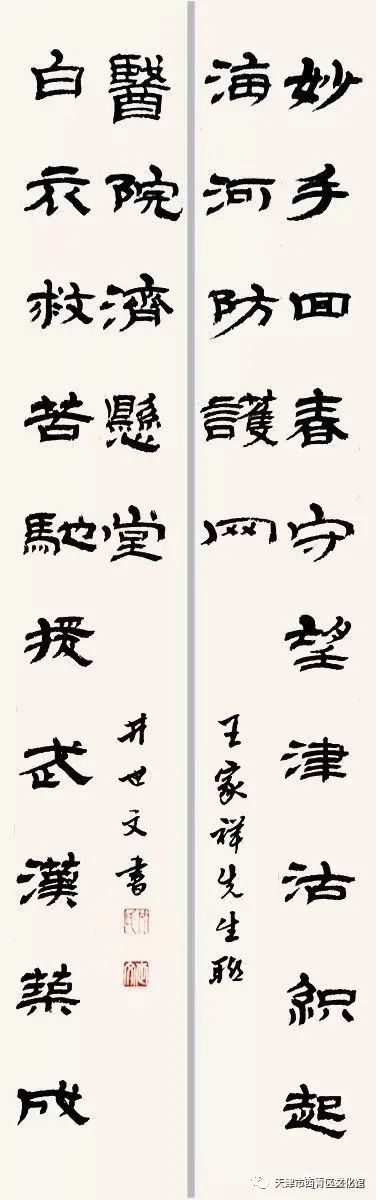 妙手回春守望津沽織起
海河防護网
王家祥先生聯
白衣救苦馳援武漢築成
醫院濟懸堂
井世文書
天津市西青区文化馆